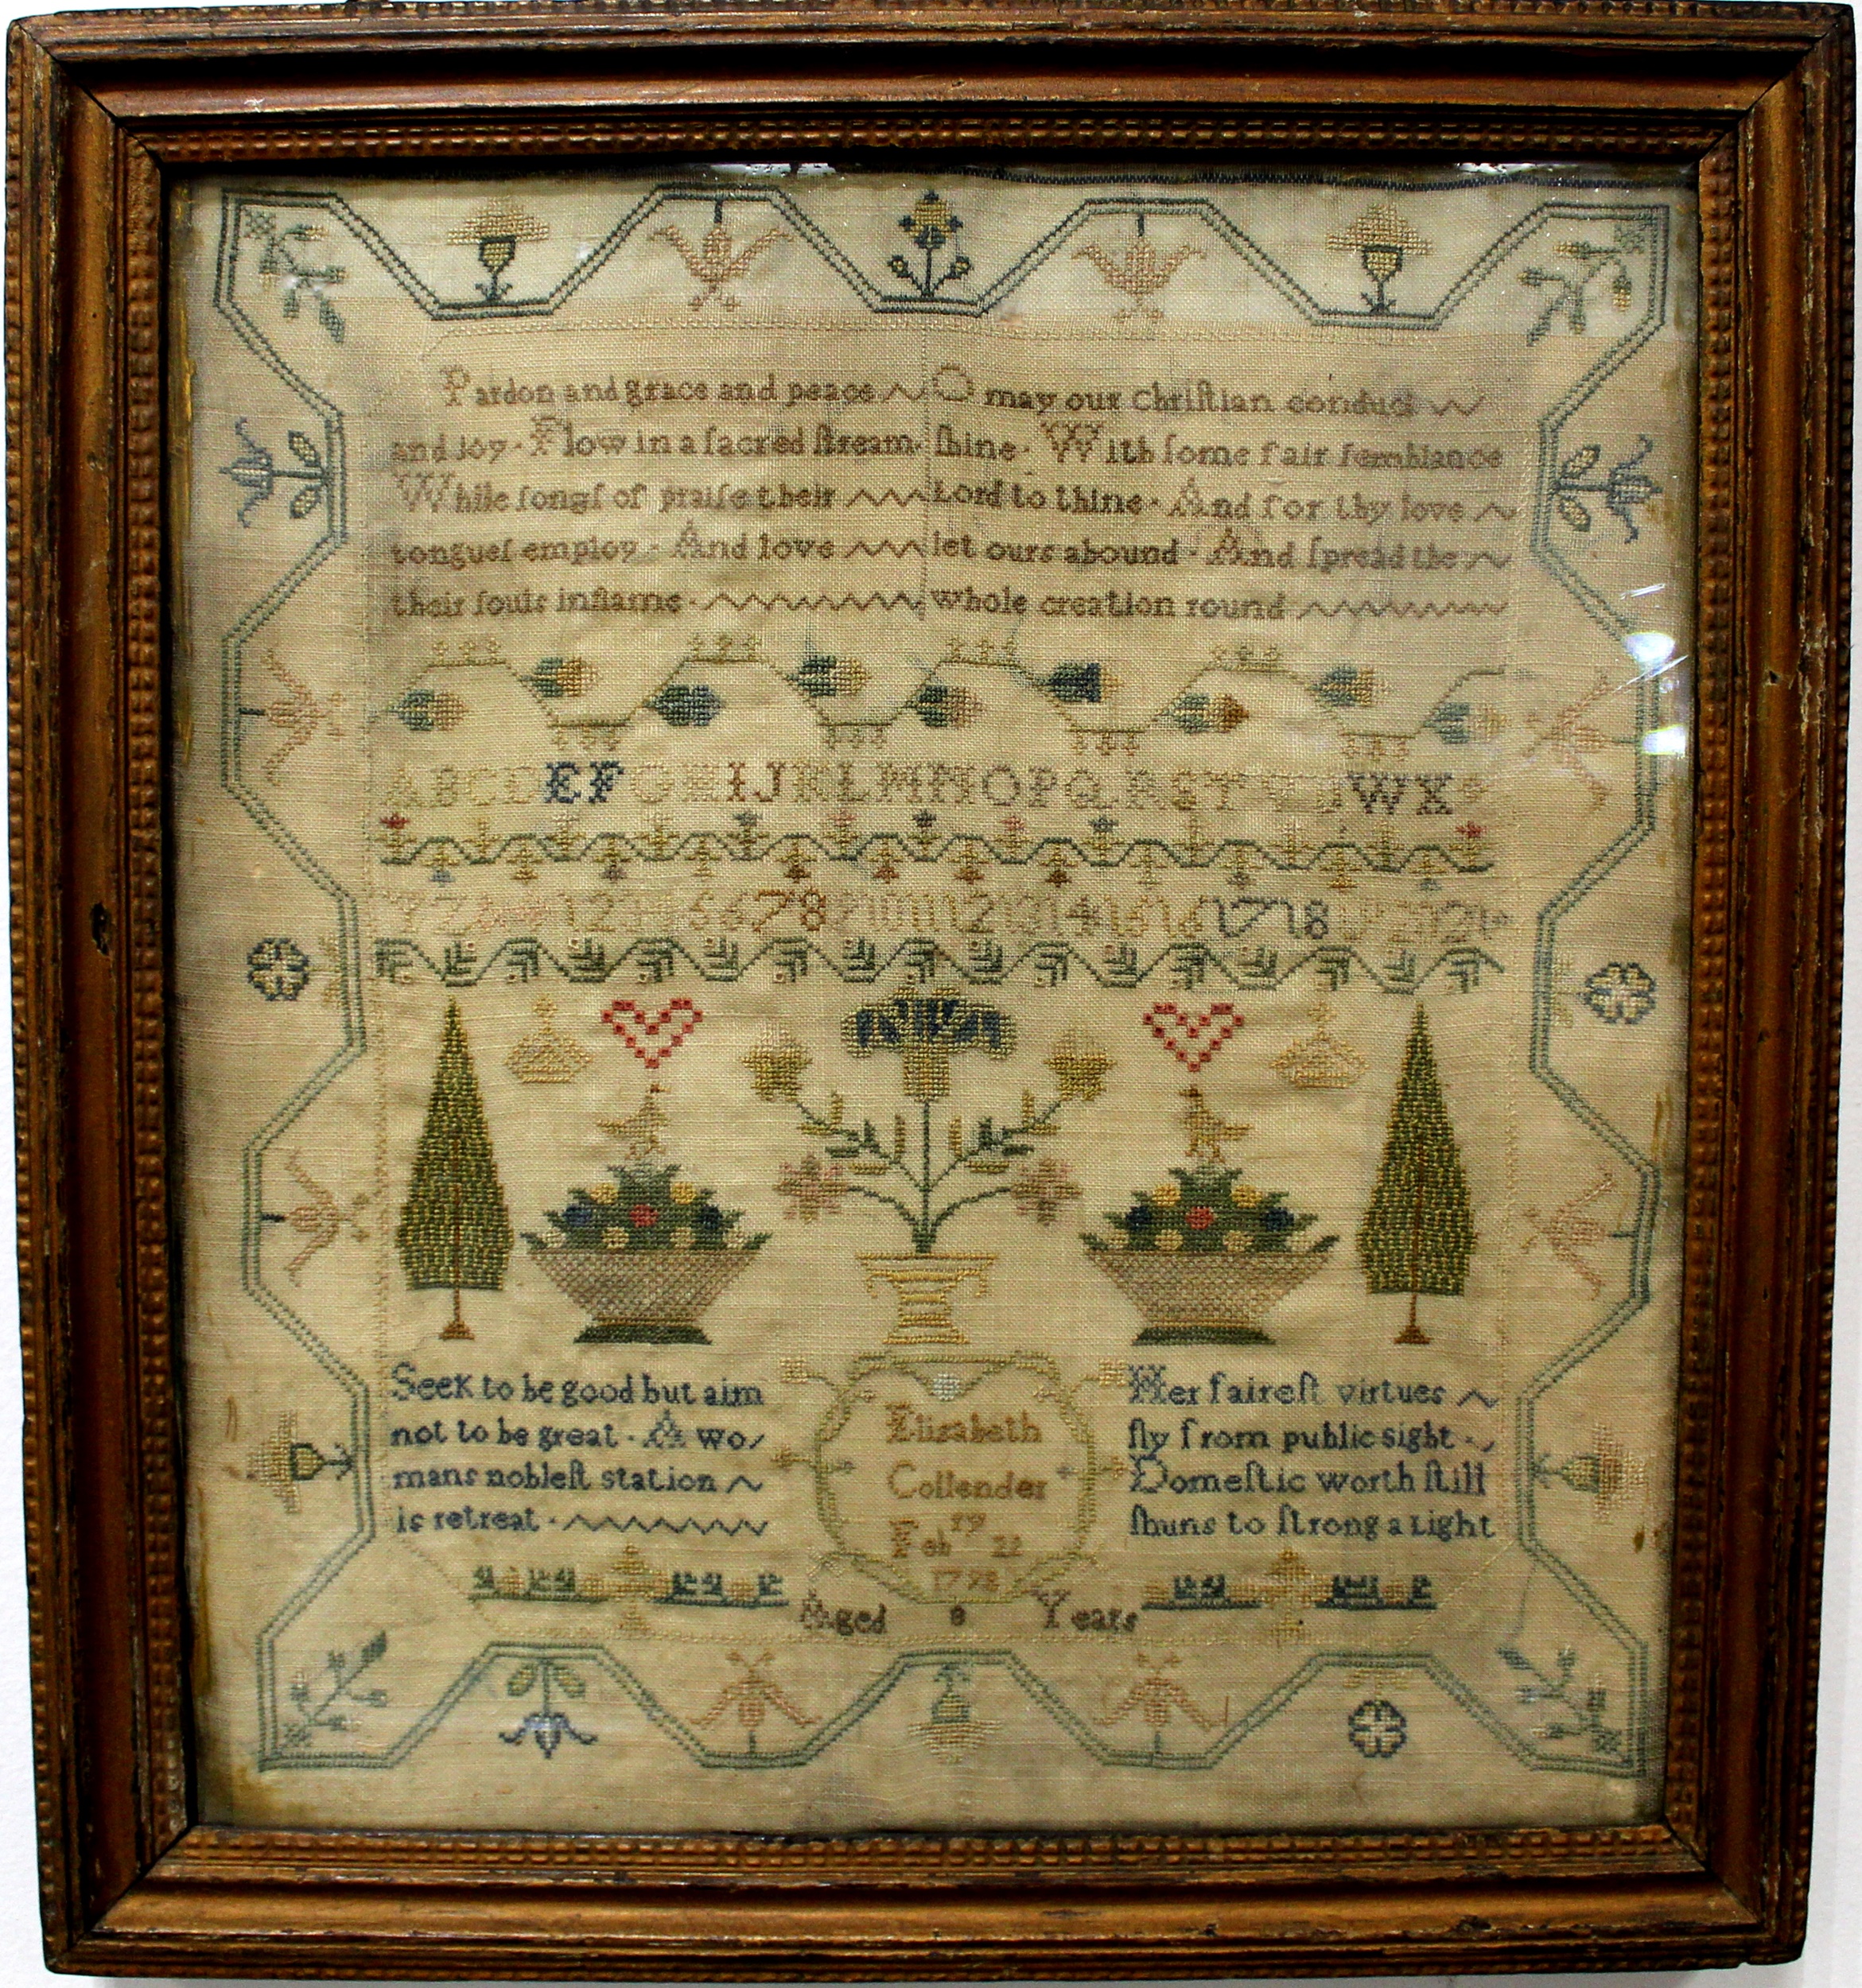 Pardon and grace and peace
and joy · Flow in a ſacred ſtream ·
While ſongſ of praiſe their
tongueſ employ · And love
their ſouls inflame ·
O may our Chriſtian conduct
ſhine · With ſome fair ſemblance
Lord to thine · And for thy love
let ours abound · And ſpread the
whole creation round
ABCDEFGHIJKLMNOPQRST WX
Y Z 1 2 5 6 7 8 9 10 11 12 13 14 15 16 17 18 19 20 21
Seek to be good but aim
not to be great · A wo
mans nobleſt station
is retreat ·
Elizabeth
Collender
Feb
Aged 8 Years
Her faireſt virtues
fly from public sight ·
Domeſtic worth ſtill
ſhuns to ſtrong a Light